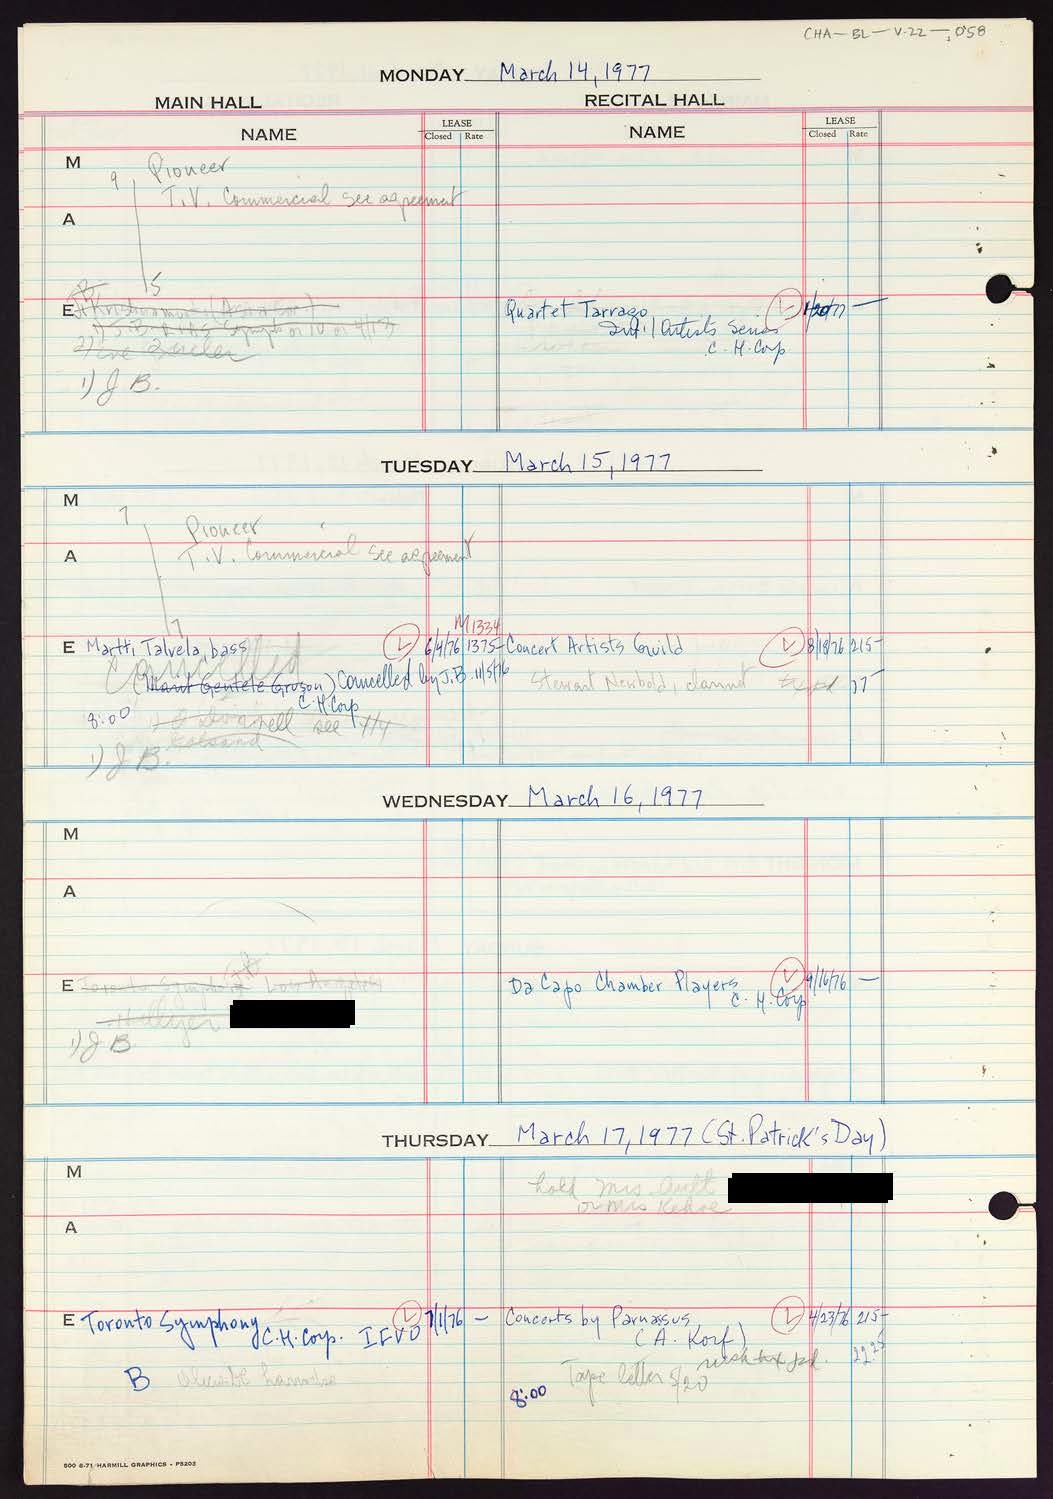 CHA-BL-V-22-058
MONDAY March 14, 1977
MAIN HALL RECITAL HALL
NAME LEASE Closed Rate NAME LEASE Closed Rate
M
9 Pioneer
T.V. Commercial see agreement
A
5
E
Quartet Tarrago
Int'l Artists Series
C.H. Corp
1) J B.
TUESDAY March 15, 1977
M
7 Pioneer
A T.V. Commercial see agreement
7
M 1334
E Martti Talvela, bass L 6/4/76 1375- Concert Artists Guild L 8/18/76 215-
Cancelled
(Marit Gentele Gruson) Cancelled by J.B. 11/5/76 Stewart Newbold, clarinet 17
C.H. Corp
8:00
see 4/4
1) J B.
WEDNESDAY March 16, 1977
M
A
E Toronto Symphony Los Angeles Da Capo Chamber Players L 9/16/76 —
C.H. Corp
1) J B
THURSDAY March 17, 1977 (St. Patrick's Day)
M hold Mrs
or Mrs
A
E Toronto Symphony L 7/1/76 — Concerts by Parnassus L 4/23/76 215-
C.H. Corp. (A. Korf)
B Tape letter 5/20
8:00
500 6-71 HARMILL GRAPHICS - P5203